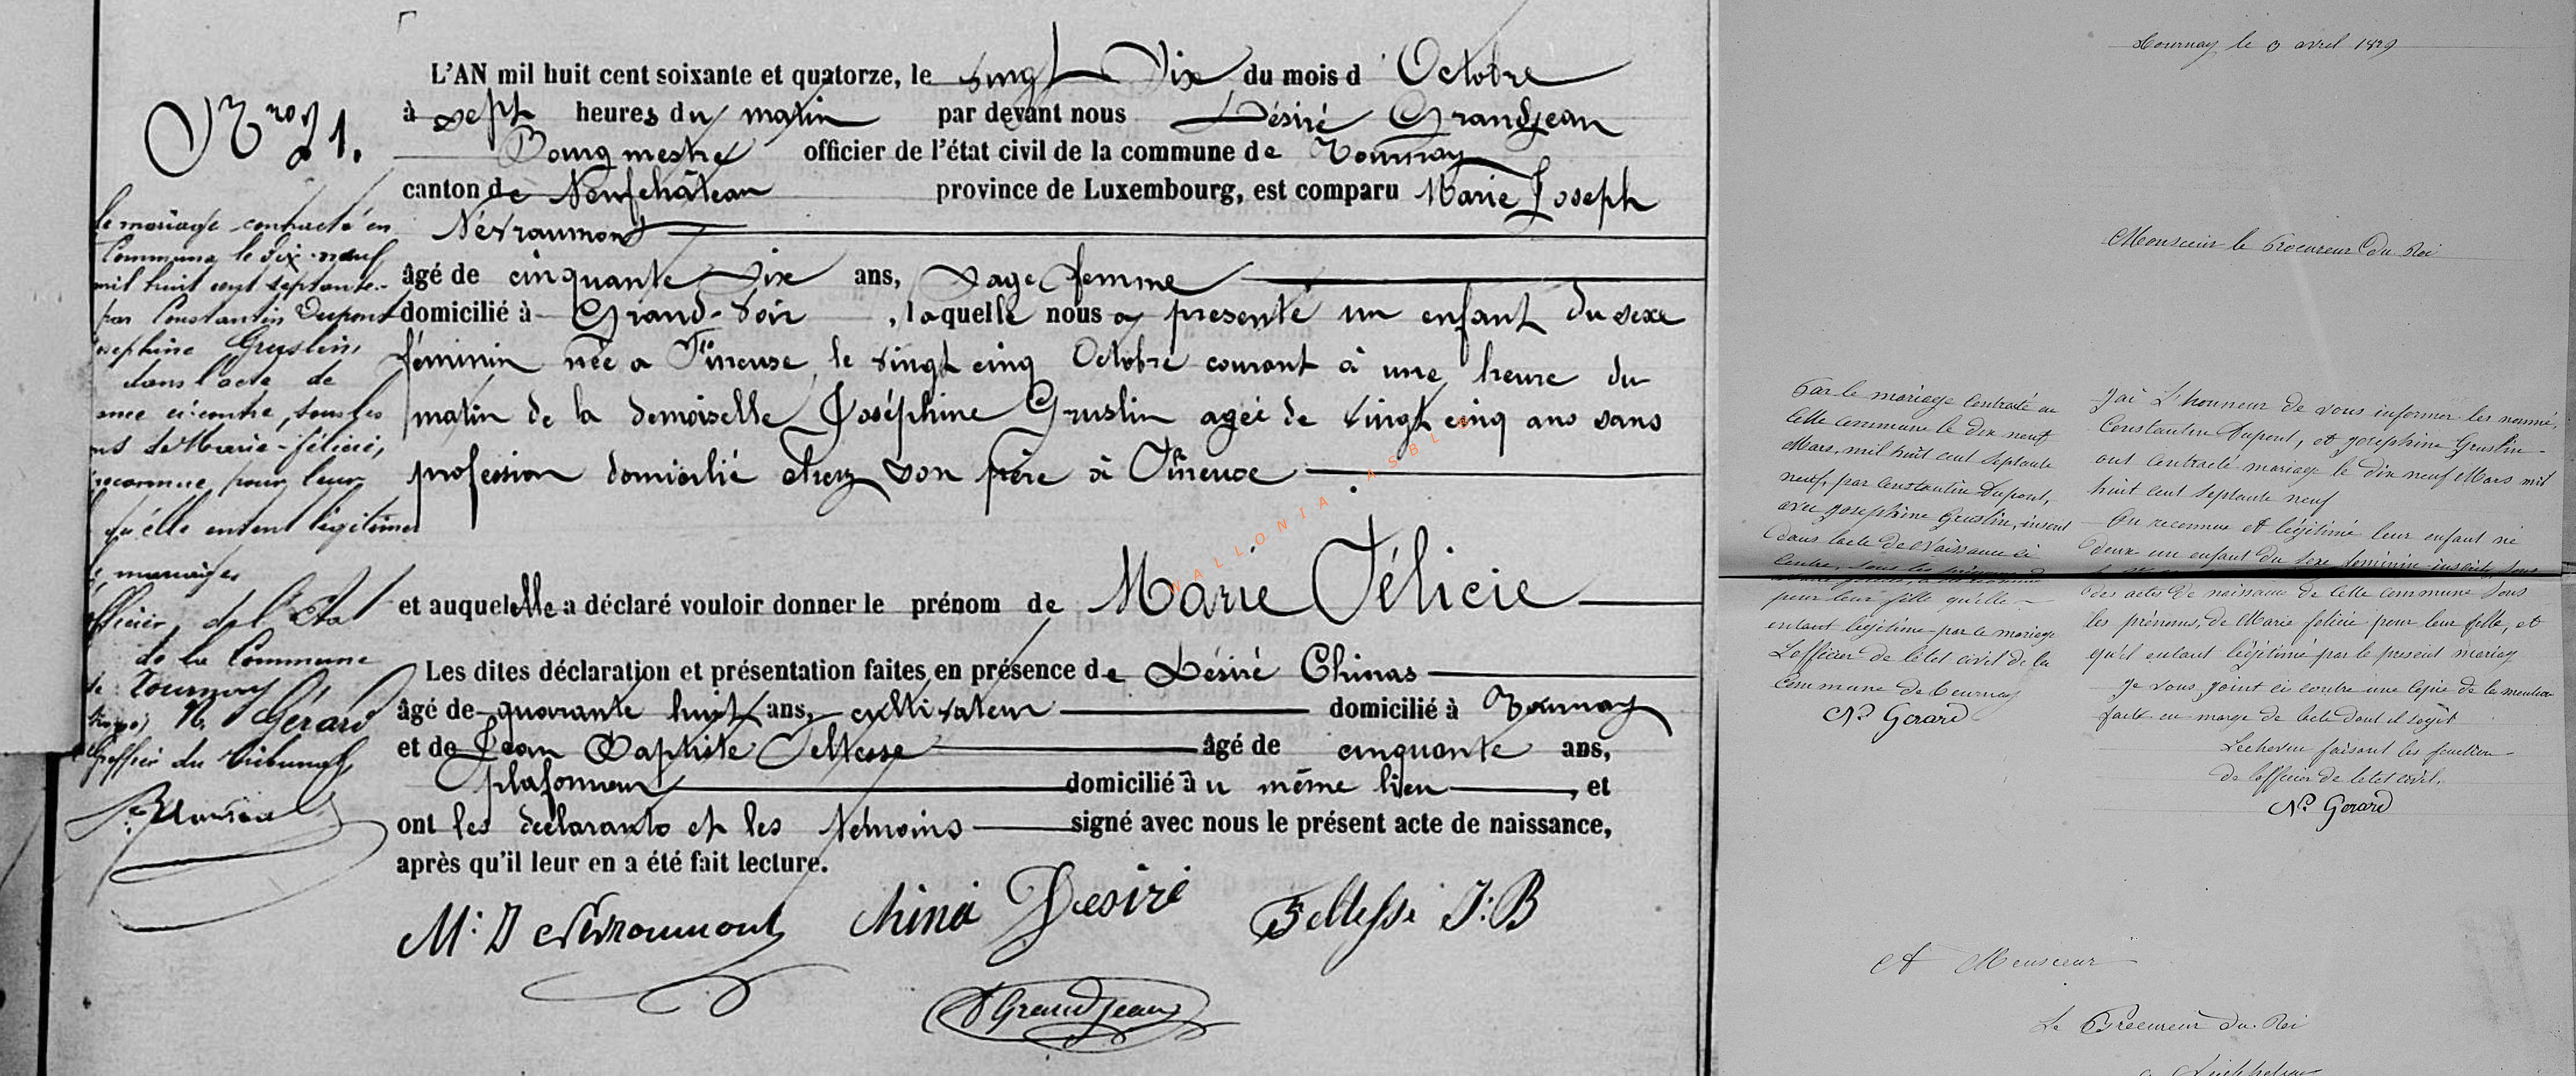 L'AN mil huit cent soixante et quatorze, le vingt Six du mois d' Octobre
à sept heures du matin par devant nous Désiré Grandjean
Bourgmestre officier de l'état civil de la commune de Tournay
canton de Neufchâteau province de Luxembourg, est comparu Marie Joseph
Névraumont
âgé de cinquante Six ans, Sage femme
domicilié à Grand-Voir, laquelle nous a présenté un enfant du sexe
féminin née a Tineuse, le vingt cinq Octobre courant à une heure du
matin de la demoiselle Joséphine Gruslin agée de vingt cinq ans sans
profession domicilié chez son père à Tineuse
et auquelelle a déclaré vouloir donner le prénom de Marie Félicie
Les dites déclaration et présentation faites en présence de Désiré Chinas
âgé de quarante huit ans, cultivateur domicilié à Tournay
et de Jean Baptiste Feltesse âgé de cinquante ans,
plafonneur domicilié au même lieu, et
ont les déclarants et les témoins signé avec nous le présent acte de naissance,
après qu'il leur en a été fait lecture.
M: J Névraumont China Desiré Feltesse J:B
D Grandjean
Nro 21.
le mariage contracté en
Commune le dix-neuf
mil huit cent septante-
par Constantin Dupont
osephine Gruslin,
dans l'acte de
ance ci-contre, sous les
ms de Marie-félicié,
reconnue pour leur
qu'elle entent légitimer
mariage
fficier de l'Etat
de la Commune
de Tournay
N. Gérard
Greffier du Tribunal
WALLONIA ASBL
Tournay le 3 avril 1879
Monsieur le Procureur du Roi
Par le mariage contracté en
cette commune le dix neuf
Mars, mil huit cent septante
neuf, par Constantin Dupont,
avec Josephine Gruslin, inscrit
dans lacte de Naissance ci
contre, sous les prénoms d
pour leur fille qu'elle
entant légitime par le mariage
Lofficier de létat civil de la
commune de Tournay
N. Gerard
J'ai L'honneur de vous informer les nommé,
Constantin Dupont, et Josephine Gruslin
ont contracté mariage le dix neuf Mars mil
huit cent septante neuf
On reconnue et légitimé leur enfant né
deux un enfant du sexe feminin inscrit, sous
des actes de naissance de cette commune sous
les prénoms, de Marie felicie pour leur fille, et
qu'il entant légitimé par le present mariag
Je vous joint ci contre une copie de la mention
faite en marge de lacte dont il sagit
Lechevin faisant les fonction
de lofficier de letat civil.
N. Gerard
A Monsieur
Le Procureur du Roi